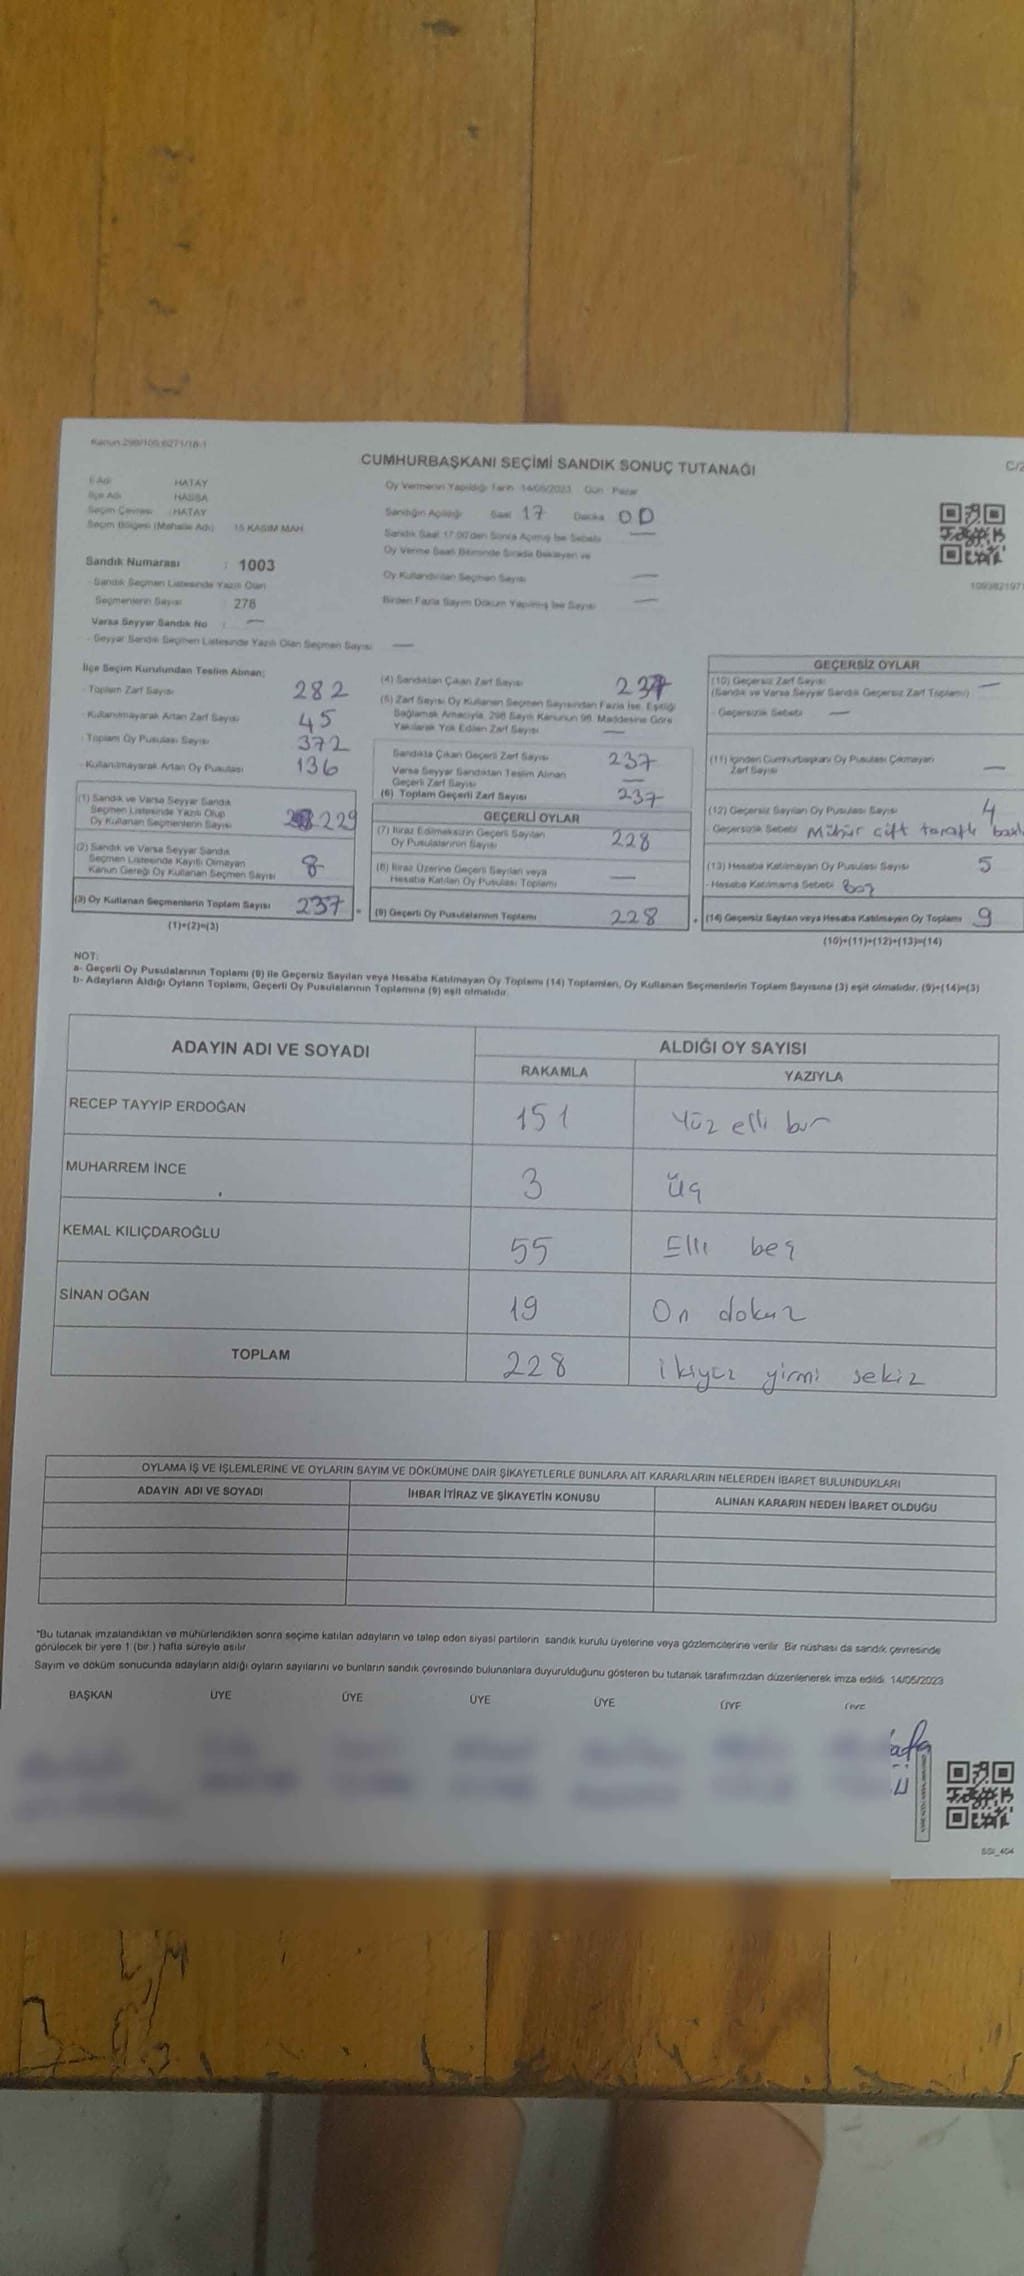 Kanun 298/105,6271/18-1
CUMHURBAŞKANI SEÇİMİ SANDIK SONUÇ TUTANAĞI
C/2
İl Adı HATAY
İlçe Adı HASSA
Seçim Çevresi :HATAY
Seçim Bölgesi (Mahalle Adı) 15 KASIM MAH.
Oy Vermenin Yapıldığı Tarih 14/05/2023 Gün Pazar
Sandığın Açıldığı Saat 17 Dakika 00
Sandık Saat 17.00'den Sonra Açılmış İse Sebebi —
Oy Verme Saati Bitiminde Sırada Bekleyen ve
Oy Kullandırılan Seçmen Sayısı —
Birden Fazla Sayım Döküm Yapılmış İse Sayısı —
Sandık Numarası : 1003
- Sandık Seçmen Listesinde Yazılı Olan
Seçmenlerin Sayısı : 278
Varsa Seyyar Sandık No : —
- Seyyar Sandık Seçmen Listesinde Yazılı Olan Seçmen Sayısı —
İlçe Seçim Kurulundan Teslim Alınan;
- Toplam Zarf Sayısı 282
- Kullanılmayarak Artan Zarf Sayısı 45
- Toplam Oy Pusulası Sayısı 372
- Kullanılmayarak Artan Oy Pusulası 136
(1) Sandık ve Varsa Seyyar Sandık
Seçmen Listesinde Yazılı Olup
Oy Kullanan Seçmenlerin Sayısı 229
(2) Sandık ve Varsa Seyyar Sandık
Seçmen Listesinde Kayıtlı Olmayan
Kanun Gereği Oy Kullanan Seçmen Sayısı 8
(3) Oy Kullanan Seçmenlerin Toplam Sayısı 237
(1)+(2)=(3)
(4) Sandıktan Çıkan Zarf Sayısı 237
(5) Zarf Sayısı Oy Kullanan Seçmen Sayısından Fazla İse, Eşitliği
Sağlamak Amacıyla, 298 Sayılı Kanunun 98. Maddesine Göre
Yakılarak Yok Edilen Zarf Sayısı —
Sandıkta Çıkan Geçerli Zarf Sayısı 237
Varsa Seyyar Sandıktan Teslim Alınan
Geçerli Zarf Sayısı —
(6) Toplam Geçerli Zarf Sayısı 237
GEÇERLİ OYLAR
(7) İtiraz Edilmeksizin Geçerli Sayılan
Oy Pusulalarının Sayısı 228
(8) İtiraz Üzerine Geçerli Sayılan veya
Hesaba Katılan Oy Pusulası Toplamı —
= (9) Geçerli Oy Pusulalarının Toplamı 228
GEÇERSİZ OYLAR
(10) Geçersiz Zarf Sayısı —
(Sandık ve Varsa Seyyar Sandık Geçersiz Zarf Toplamı)
- Geçersizlik Sebebi —
(11) İçinden Cumhurbaşkanı Oy Pusulası Çıkmayan
Zarf Sayısı —
(12) Geçersiz Sayılan Oy Pusulası Sayısı 4
- Geçersizlik Sebebi Mühür çift taraflı
(13) Hesaba Katılmayan Oy Pusulası Sayısı 5
- Hesaba Katılmama Sebebi Boş
+ (14) Geçersiz Sayılan veya Hesaba Katılmayan Oy Toplamı 9
(10)+(11)+(12)+(13)=(14)
NOT:
a- Geçerli Oy Pusulalarının Toplamı (9) ile Geçersiz Sayılan veya Hesaba Katılmayan Oy Toplamı (14) Toplamları, Oy Kullanan Seçmenlerin Toplam Sayısına (3) eşit olmalıdır. (9)+(14)=(3)
b- Adayların Aldığı Oyların Toplamı, Geçerli Oy Pusulalarının Toplamına (9) eşit olmalıdır.
ADAYIN ADI VE SOYADI ALDIĞI OY SAYISI
RAKAMLA YAZIYLA
RECEP TAYYİP ERDOĞAN 151 Yüz elli bir
MUHARREM İNCE 3 üç
KEMAL KILIÇDAROĞLU 55 Elli beş
SİNAN OĞAN 19 On dokuz
TOPLAM 228 ikiyüz yirmi sekiz
OYLAMA İŞ VE İŞLEMLERİNE VE OYLARIN SAYIM VE DÖKÜMÜNE DAİR ŞİKAYETLERLE BUNLARA AİT KARARLARIN NELERDEN İBARET BULUNDUKLARI
ADAYIN ADI VE SOYADI İHBAR İTİRAZ VE ŞİKAYETİN KONUSU ALINAN KARARIN NEDEN İBARET OLDUĞU
"Bu tutanak imzalandıktan ve mühürlendikten sonra seçime katılan adayların ve talep eden siyasi partilerin sandık kurulu üyelerine veya gözlemcilerine verilir. Bir nüshası da sandık çevresinde
görülecek bir yere 1 (bir ) hafta süreyle asılır.
Sayım ve döküm sonucunda adayların aldığı oyların sayılarını ve bunların sandık çevresinde bulunanlara duyurulduğunu gösteren bu tutanak tarafımızdan düzenlenerek imza edildi. 14/05/2023
BAŞKAN ÜYE ÜYE ÜYE ÜYE ÜYE ÜYE